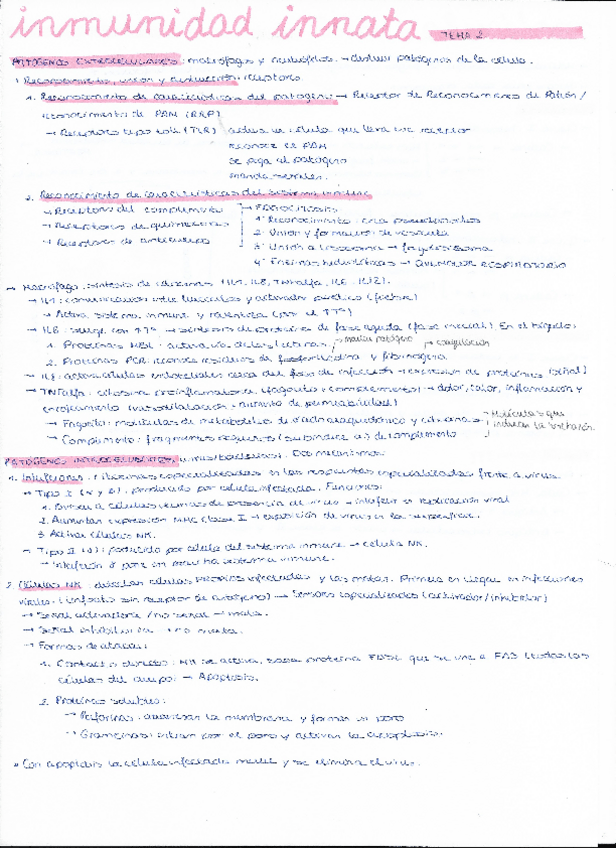 inmunidad innata TEMA 2
PATÓGENOS EXTRACELULARES: macrófagos y neutrófilos. → destruir patógenos de la célula.
1. Reconocimiento, unión y destrucción: receptores
1. Reconocimiento de características del patógeno → Receptor de Reconocimiento de Patrón /
reconocimiento de PAM (RRP)
→ Receptores tipo toll (TLR) célula que lleva ese receptor
reconoce el PAM
se pega al patógeno
manda señales.
2. Reconocimiento de características del sistema inmune
→ Receptores del complemento → FAGOCITOSIS
→ Receptores de quimiocinas 1º Reconocimiento: crea pseudópodos
→ Receptores de anticuerpo 2º Unión y formación de vesícula
3º Unión a lisosoma → fagolisosoma
4º Enzimas hidrolíticas → QUEMADOR RESPIRATORIO
→ Macrófago: síntesis de citocinas (IL1, IL8, TNFalfa, IL6, IL12).
→ IL1: comunicación entre leucocitos y activador
→ Activa sistema inmune y (por el Tª)
→ IL6: surge con Tª → síntesis de proteínas de fase aguda (fase inicial). En el hígado:
1. Proteínas MBL: activación de las lectinas → marcar patógeno → coagulación
2. Proteínas PCR: reconoce residuos de fosforilcolina y fibrinógeno
→ IL8: activa células endoteliales cerca del foco de infección → expresión de proteínas
→ TNFalfa: citocina proinflamatoria (fagocito y complemento) → dolor, calor, inflamación y
enrojecimiento (vasodilatación: aumento de permeabilidad)
→ Fagocito: moléculas de metabolitos de ácido araquidónico y citocinas Moléculas que
→ Complemento: fragmentos pequeños (subíndice a) de complemento inducen la
PATÓGENOS INTRACELULARES (virus/bacterias). Dos mecanismos:
1. Interferones: citocinas especializadas en las respuestas especializadas frente a virus.
→ Tipo I (α y β): producido por célula infectada. Funciones:
1. Avisan a células vecinas de presencia de virus → interfiere en replicación viral
2. Aumentan expresión MHC clase I → exposición de virus en la superficie.
3. Activar células NK.
→ Tipo II (γ): producido por célula del sistema inmune → célula NK.
→ Interferón γ pone en marcha sistema inmune.
2. Células NK: detectan células propias infectadas y las matan. Primeras en llegar en infecciones
virales (linfocito sin receptor de antígeno) → Sensores especializados (activador/inhibidor)
→ Señal activadora / no señal → mata.
→ Señal inhibidora → no mata.
→ Formas de atacar:
1. Contacto directo: NK se activa, saca proteína FASL que se une a FAS (todas las
células del cuerpo → Apoptosis.
2. Proteínas solubles:
→ Perforinas: atraviesan la membrana y forman un poro
→ Granzimas: entran por el poro y activan la apoptosis.
* Con apoptosis la célula infectada muere y se elimina el virus.